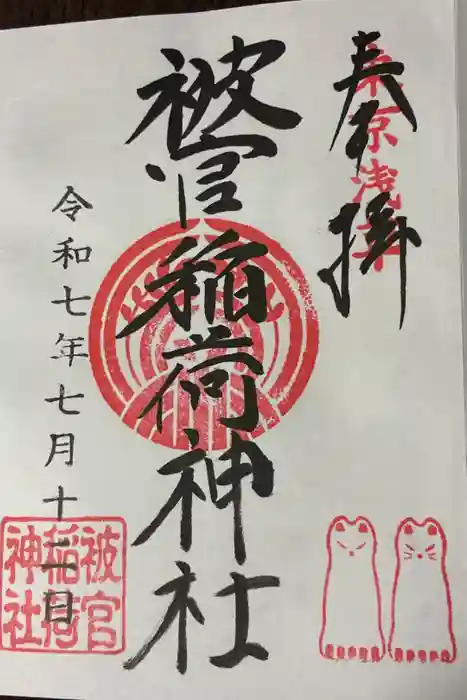 奉拝
東京浅草
被官稲荷神社
令和七年七月十二日
被官
稲荷
神社